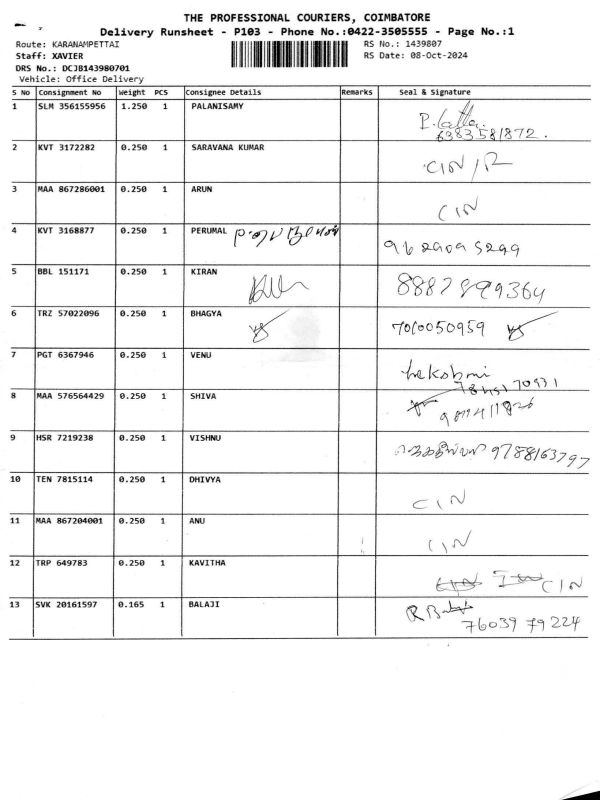 THE PROFESSIONAL COURIERS, COIMBATORE
Delivery Runsheet - P103 - Phone No.:0422-3505555 - Page No.:1
Route: KARANAMPETTAI RS No.: 1439807
Staff: XAVIER RS Date: 08-Oct-2024
DRS No.: DCJB143980701
Vehicle: Office Delivery
S No Consignment No Weight PCS Consignee Details Remarks Seal & Signature
1 SLM 356155956 1.250 1 PALANISAMY
6383581872.
2 KVT 3172282 0.250 1 SARAVANA KUMAR CIN/R
3 MAA 867286001 0.250 1 ARUN CIN
4 KVT 3168877 0.250 1 PERUMAL
5 BBL 151171 0.250 1 KIRAN
6 TRZ 57022096 0.250 1 BHAGYA
7 PGT 6367946 0.250 1 VENU
8 MAA 576564429 0.250 1 SHIVA
9 HSR 7219238 0.250 1 VISHNU 9788163797
10 TEN 7815114 0.250 1 DHIVYA CIN
11 MAA 867204001 0.250 1 ANU CIN
12 TRP 649783 0.250 1 KAVITHA CIN
13 SVK 20161597 0.165 1 BALAJI
76039 79224